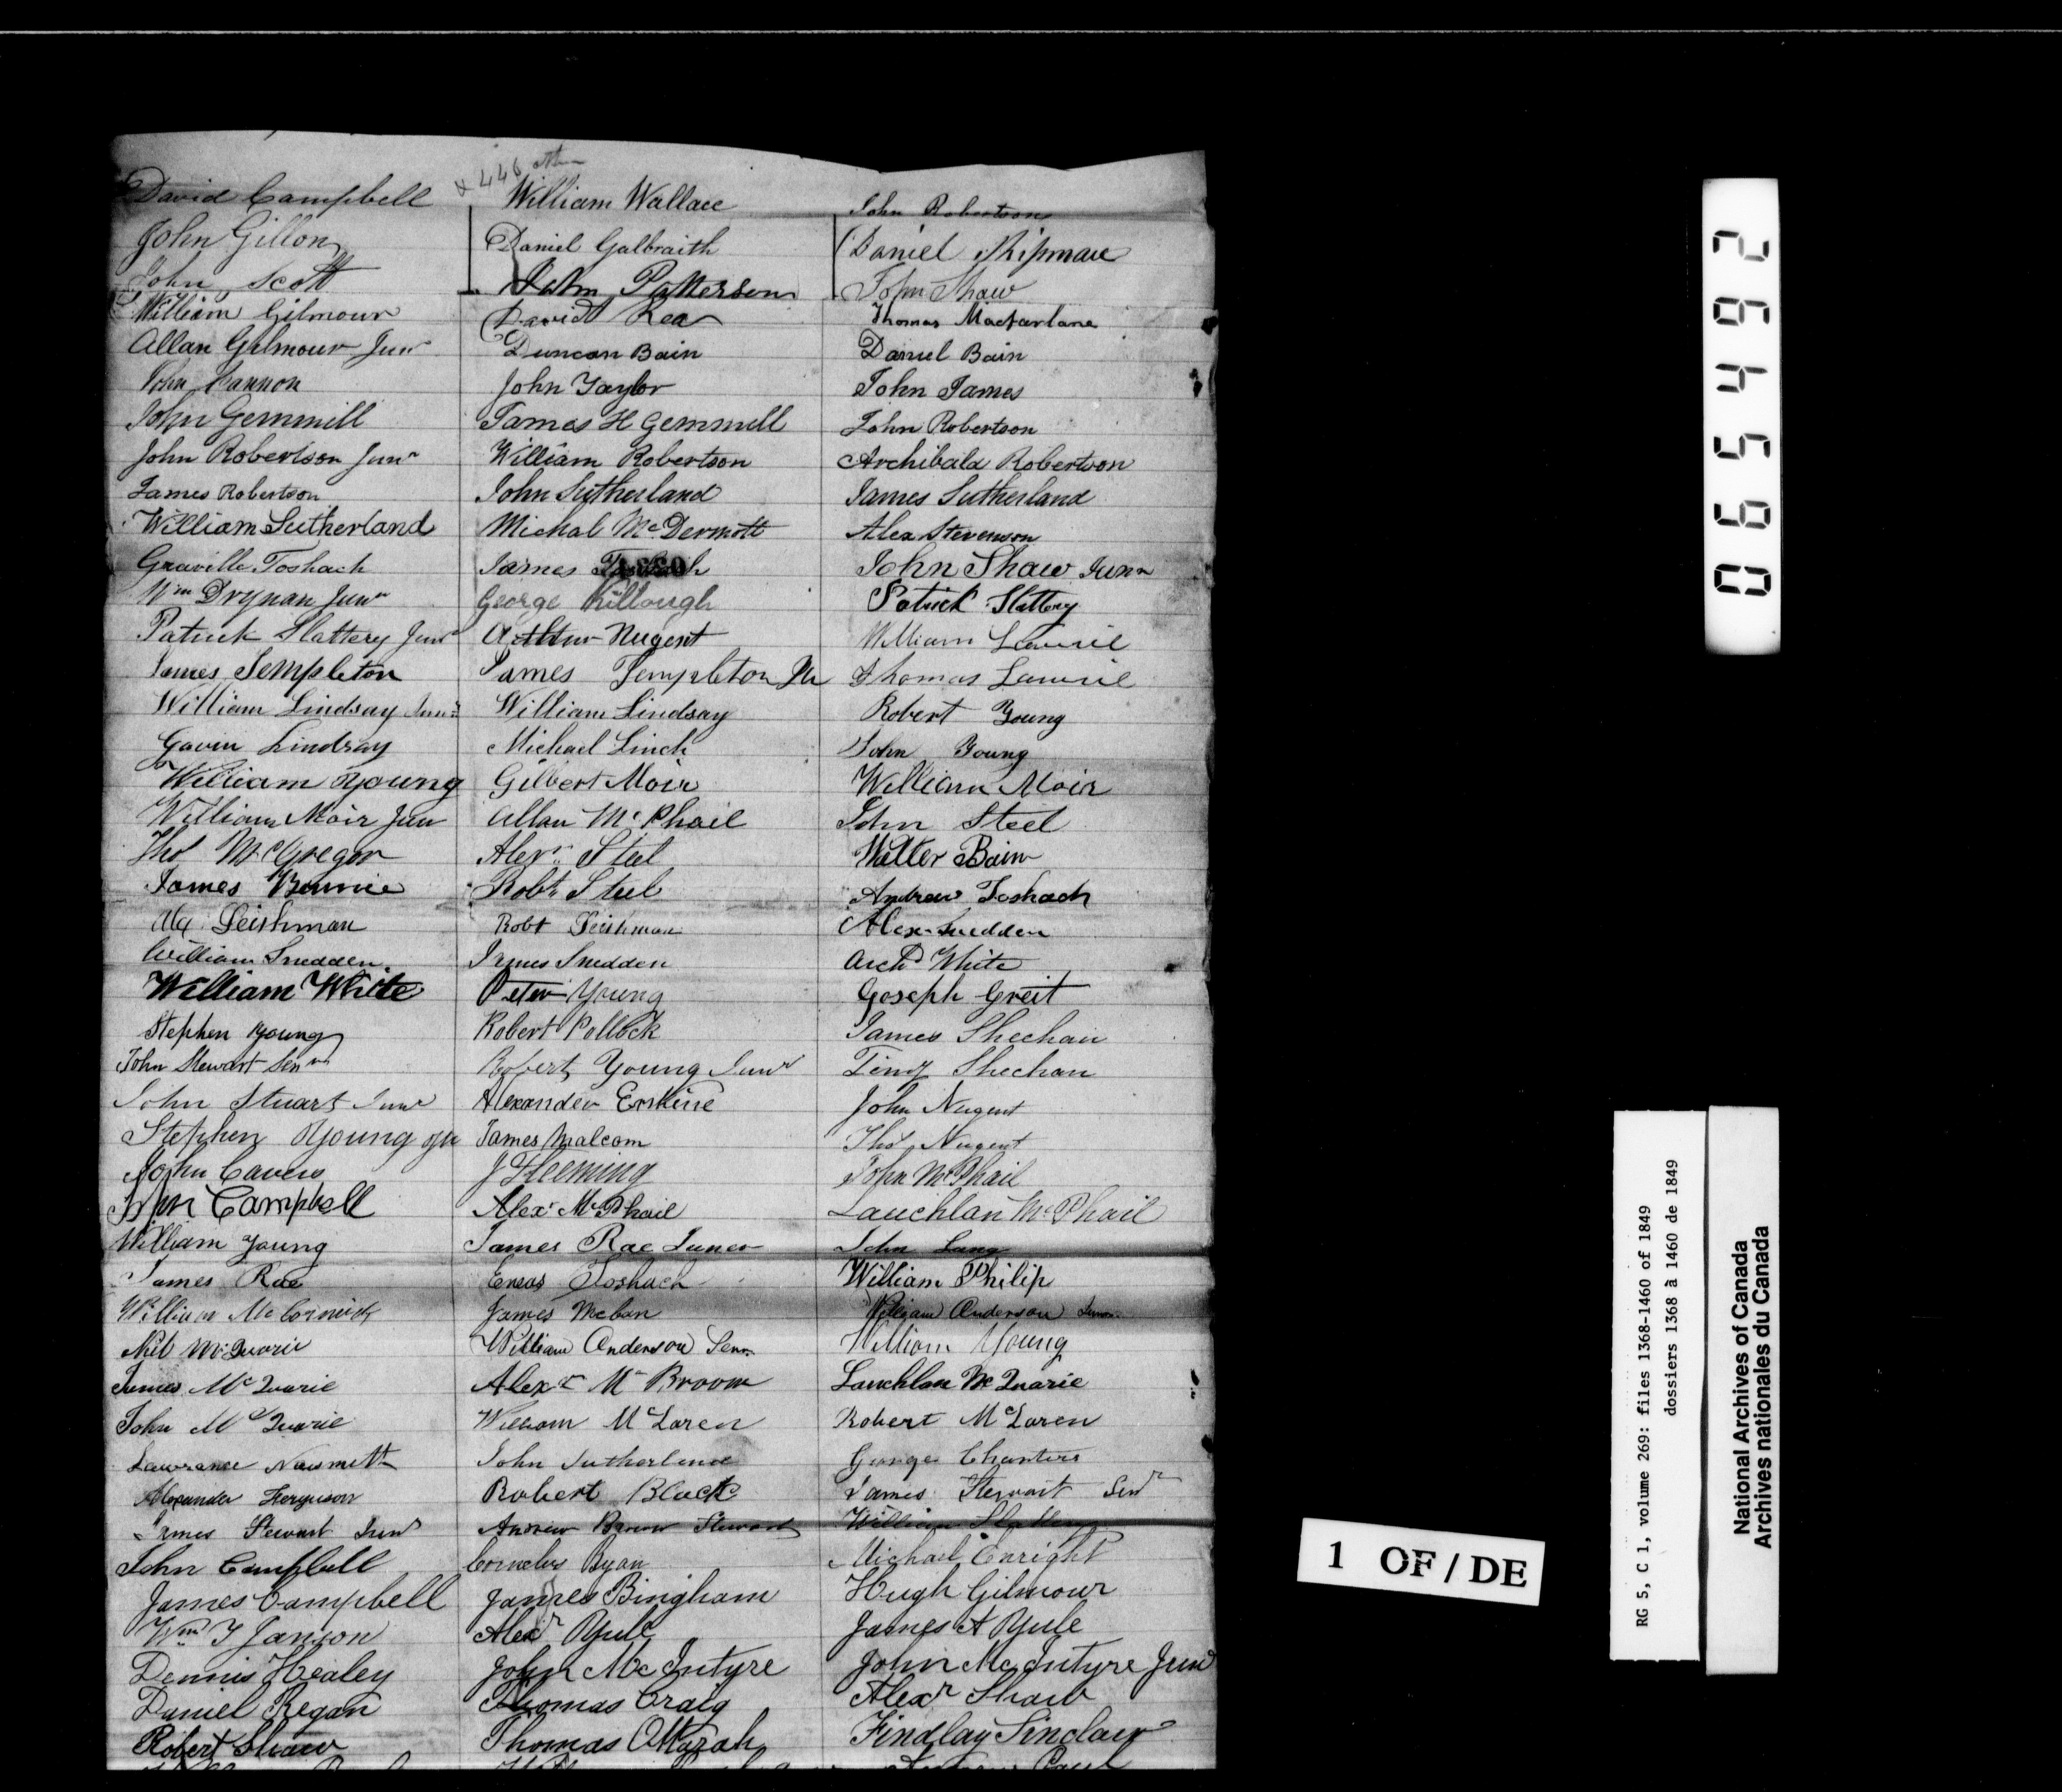 x 446
David Campbell William Wallace John Robertson
John Gillon Daniel Galbraith Daniel Shipman
John Scott John Patterson John Shaw
William Gilmour David Rea Thomas Macfarlane
Allan Gilmour Junr Duncan Bain Daniel Bain
John Cannon John Taylor John James
John Gemmill James H Gemmill John Robertson
John Robertson Junr William Robertson Archibald Robertson
James Robertson John Sutherland James Sutherland
William Sutherland Michal McDermott Alex Stevenson
Graville Toshach James Toshach John Shaw Junr
Wm Drynan Junr George Killough Patrick Slattery
Patrick Slattery Junr Arthur Nugent William Lawrie
James Templeton James Templeton Jr Thomas Lawrie
William Lindsay Junr William Lindsay Robert Young
Gavin Lindsay Michael Linch John Young
William Young Gilbert Moir William Moir
William Moir Jun Allan McPhail John Steel
Thos McGregor Alexr Steel Walter Bain
James Robt Steel Andrew Toshach
Alex Leishman Robt Leishman Alex Snedden
William Snedden James Snedden Archd White
William White Peter Young Joseph Greit
Stephen Young Robert Pollock James Sheehan
John Stewart Senr Robert Young Junr Timy Sheehan
John Stuart Junr Alexander Erskine John Nugent
Stephen Young Jr James Malcom Thos Nugent
John Cavers J Fleeming John McPhail
John Campbell Alexr McPhail Lauchlan McPhail
William Young James Rae Juner John Lang
James Rae Eneas Toshach William Philip
William McCormick James McCan William Anderson Junr
Neil McQuarie William Anderson Senr William Young
James McQuarie Alexr McBroom Lauchlan McQuarie
John McQuarie William McLaren Robert McLaren
Lawrance Naismith John Sutherland George Charters
Alexander Ferguson Robert Black James Stewart Senr
James Stewart Junr Andrew Brown Stewart William Slattery
John Campbell Cornelus Ryan Michael Enright
James Campbell James Bingham Hugh Gilmour
Wm J Janson Alexr Yule James A Yule
Dennis Healey John McIntyre John McIntyre Junr
Daniel Regan Thomas Craig Alexr Shaw
Robert Shaw Thomas OMarah Findlay Sinclair
065492
RG 5, C 1, volume 269: files 1368-1460 of 1849
dossiers 1368 à 1460 de 1849
National Archives of Canada
Archives nationales du Canada
1 OF/DE